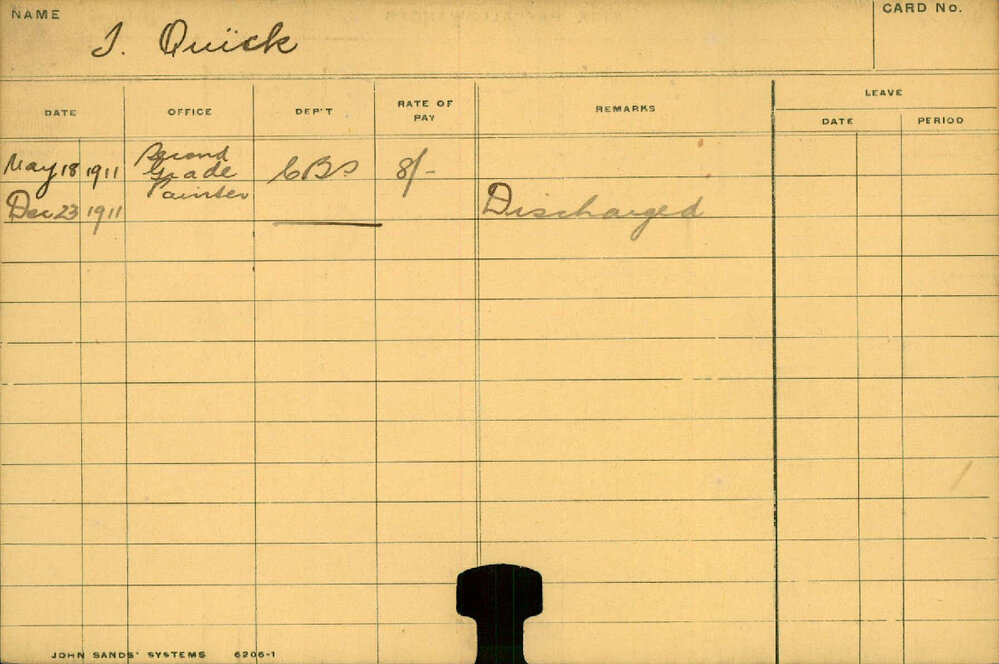 NAME
CARD No.
J. Quick
LEAVE
DATE OFFICE DEP'T RATE OF PAY REMARKS DATE PERIOD
May 18 1911 Second Grade Painter 8/-
Dec 23 1911 Discharged
JOHN SANDS' SYSTEMS 6206-1